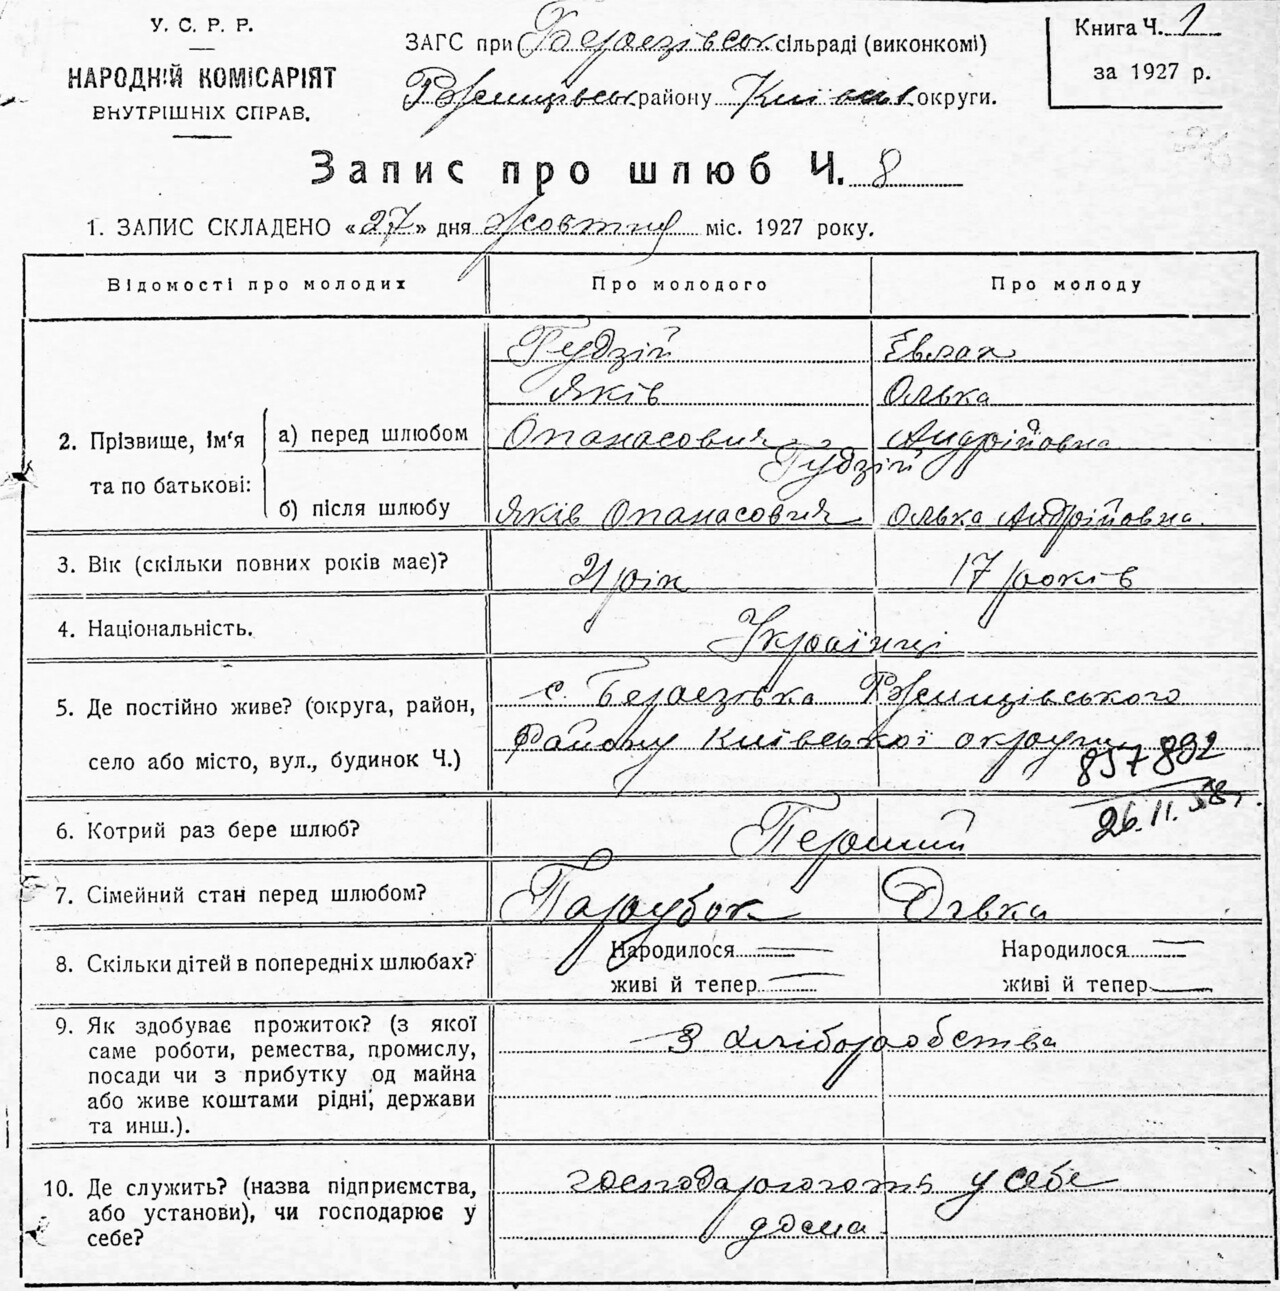 У. С. Р. Р.
НАРОДНІЙ КОМІСАРІЯТ
ВНУТРІШНІХ СПРАВ.
ЗАГС при Березівськ сільраді (виконкомі)
Ржищівськ району Київськ округи.
Книга Ч. 1
за 1927 р.
Запис про шлюб Ч. 8
1. ЗАПИС СКЛАДЕНО «27» дня жовтня міс. 1927 року.
Відомості про молодих Про молодого Про молоду
Гудзій
Яків Олька
2. Прізвище, ім'я а) перед шлюбом Опанасович Андрійовна
Гудзій
та по батькові: б) після шлюбу Яків Опанасович Олька Андрійовна.
3. Вік (скільки повних років має)? 21 рік 17 років
4. Національність. Українці
5. Де постійно живе? (округа, район, с. Березівка Ржищівського
село або місто, вул., будинок Ч.) Району Київської округи
857892
26.11.58г.
6. Котрий раз бере шлюб? Перший
7. Сімейний стан перед шлюбом? Парубок Дівка
8. Скільки дітей в попередніх шлюбах? Народилося — Народилося —
живі й тепер — живі й тепер —
9. Як здобуває прожиток? (з якої З хліборобства
саме роботи, ремества, промислу,
посади чи з прибутку од майна
або живе коштами рідні, держави
та инш.).
10. Де служить? (назва підприємства, господарюють у себе
або установи), чи господарює у дома.
себе?